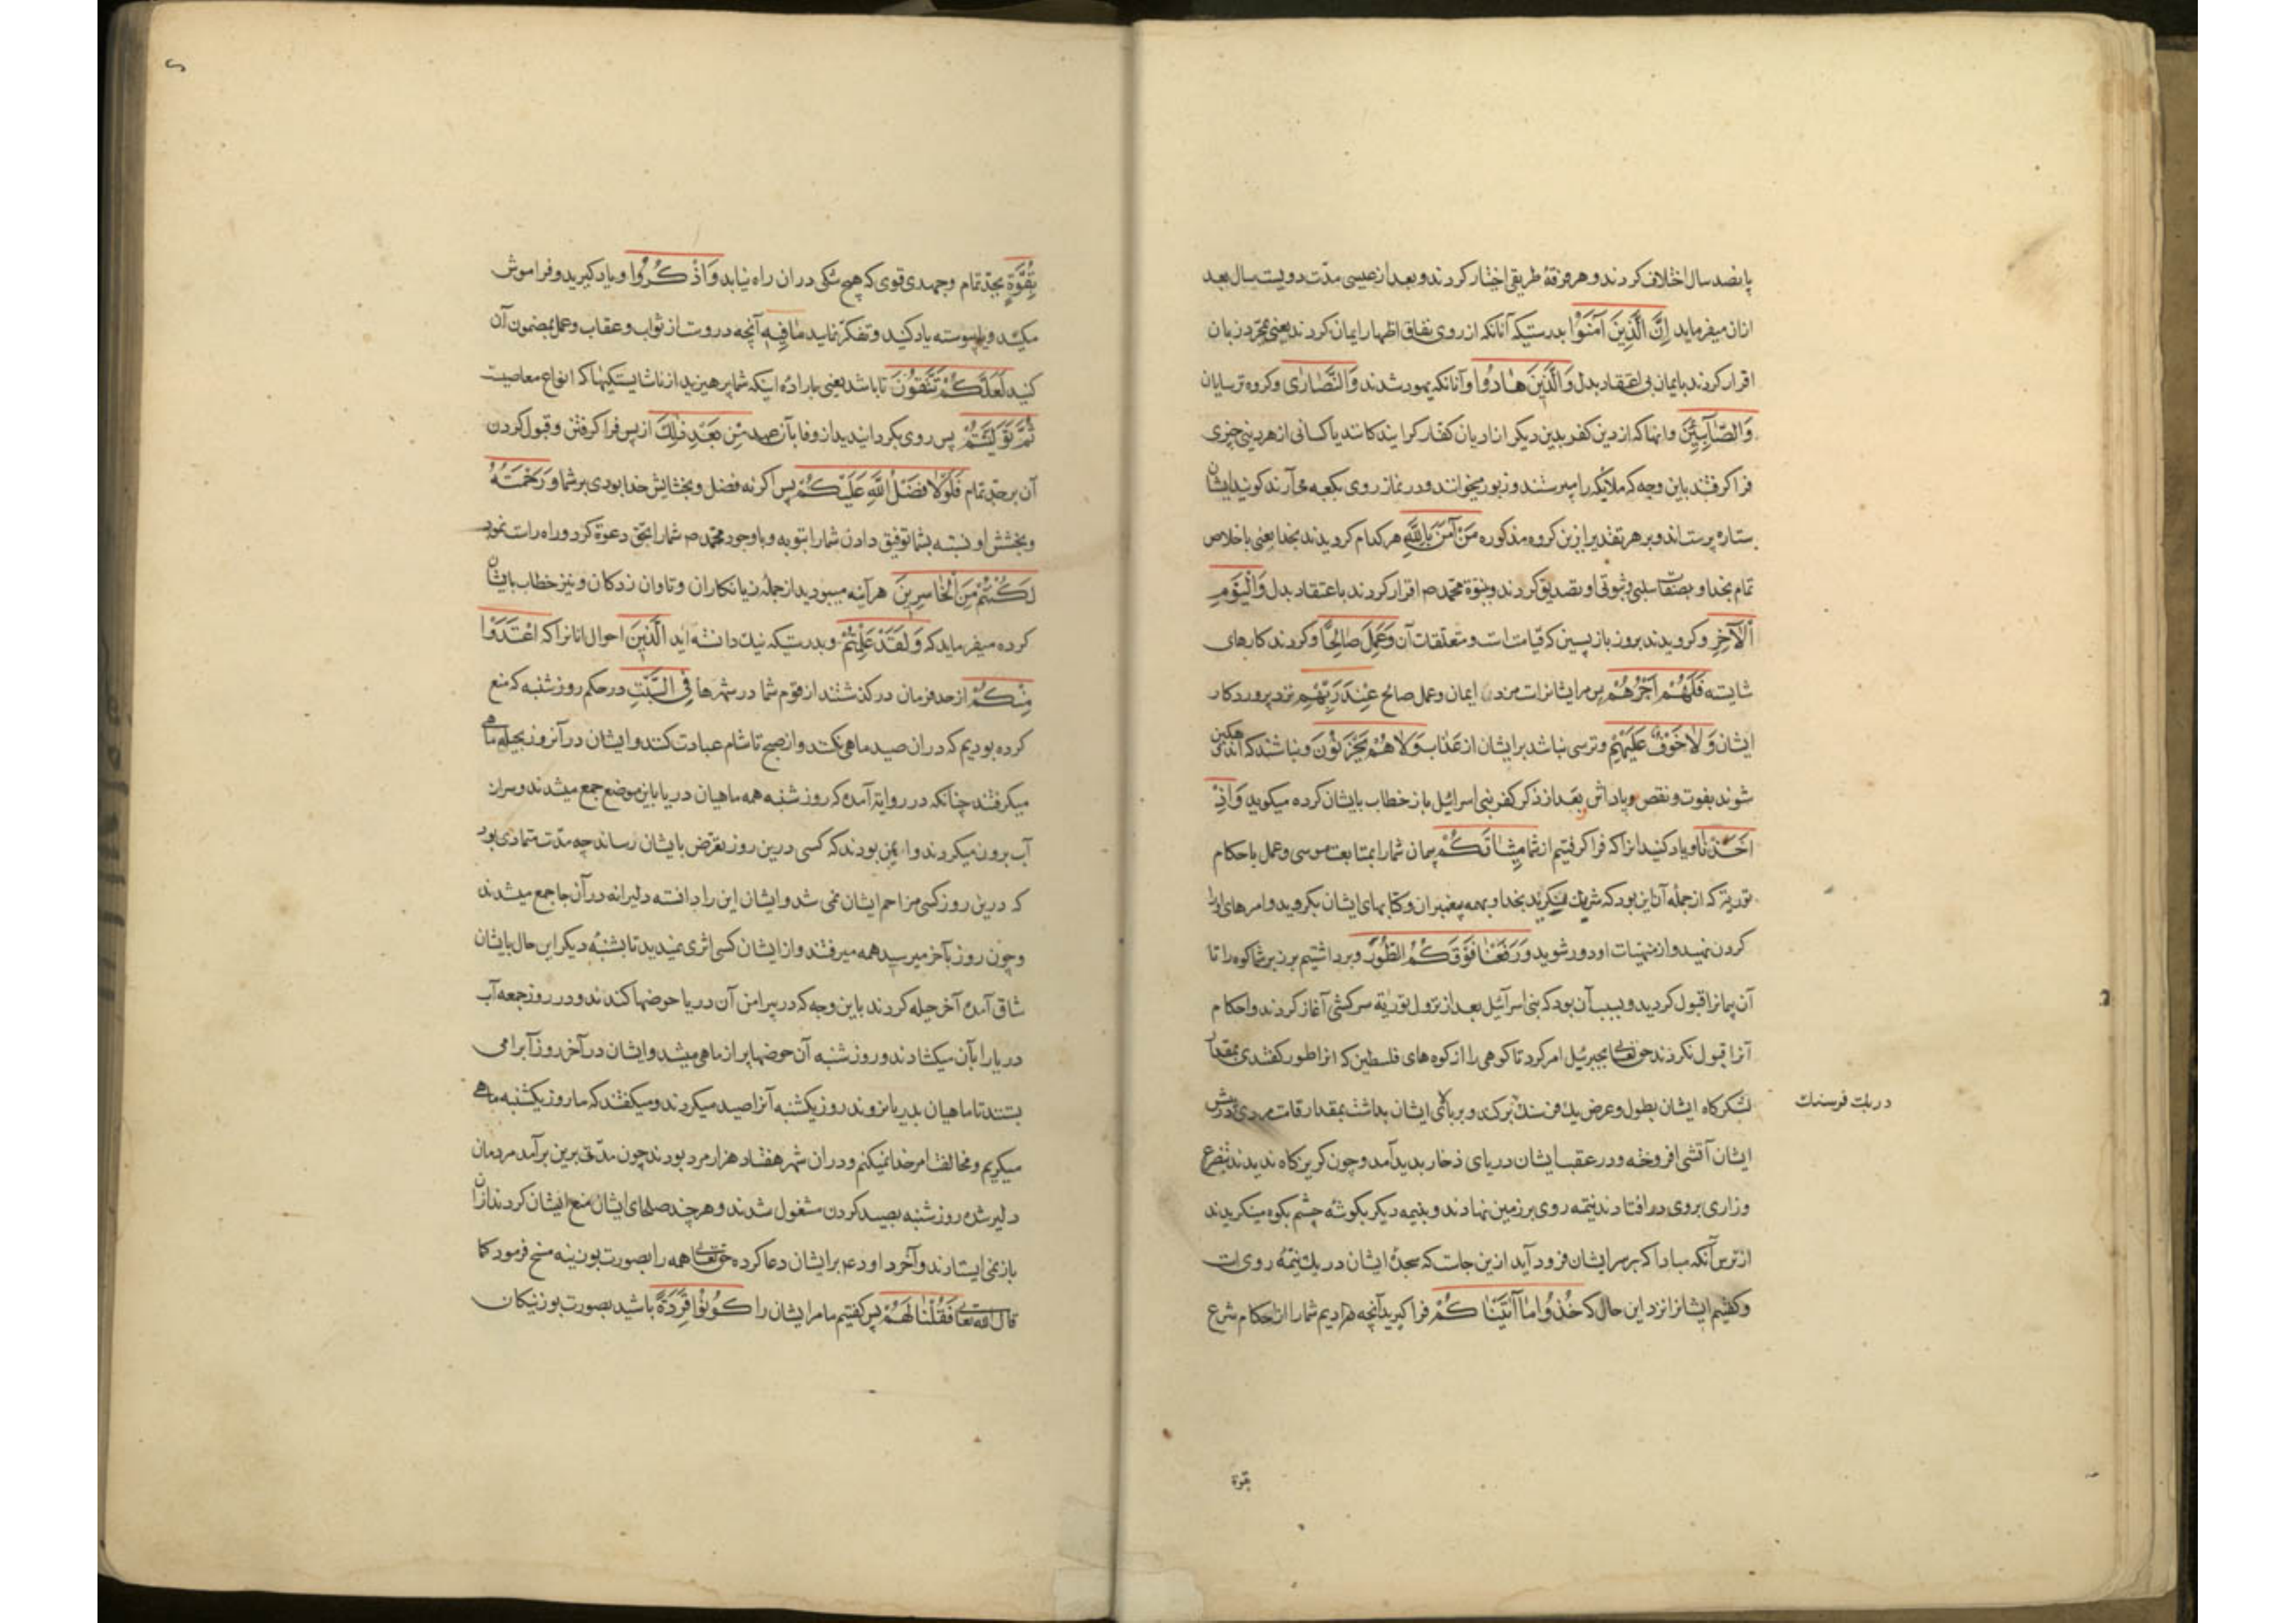 پانصد سال اختلاف کردند و هر فرقهٔ طریقی اختیار کردند و بعد از عیسی مدّت دویست سال بعد
ازان میفرماید اِنَّ الَّذِینَ آمَنُوْا بدرستیکه آنانکه از روی نفاق اظهار ایمان کردند یعنی بمجرّد زبان
اقرار کردند بایمان بی اعتقاد بدل وَالَّذِینَ هٰادُوا و آنانکه یهود شدند وَالنَّصٰارٰی و کروه ترسایان
وَالصّٰابِئِینَ و انها که از دین کفر بدین دیکر از ادیان کفار کرایند کانند یا کسانی از هر دینی چیزی
فرا کرفتند باین وجه که ملایکه را میپرستند و زبور میخوانند و در نماز روی بکعبه می آرند کویند ایشان
ستاره پرستاند و بر هر تقدیر ازین کروه مذکوره مَنْ آمَنَ بِاللّٰهِ هر کدام کرویدند بخدا یعنی باخلاص
تمام بخدا و بصفات سلبی و ثبوتی او تصدیق کردند و بنبوّة محمّد ص اقرار کردند باعتقاد بدل وَالْیَوْمِ
الْاٰخِرِ و کرویدند بروز بازپسین که قیامت است و متعلّقات آن وَعَمِلَ صٰالِحًا و کردند کارهای
شایسته فَلَهُمْ اَجْرُهُمْ پس مر ایشانراست مزد ایمان و عمل صالح عِنْدَ رَبِّهِمْ نزد پروردکار
ایشان وَلٰا خَوْفٌ عَلَیْهِمْ و ترسی نباشد بر ایشان از عذاب وَلٰا هُمْ یَحْزَنُوْنَ و نباشند که اندوهکین
شوند بفوت و نقص و پاداش بعد از ذکر کفر بنی اسرائیل باز خطاب بایشان کرده میکوید وَاِذْ
اَخَذْنٰا و یاد کنید انرا که فرا کرفتیم از شما مِیثٰاقَکُمْ پیمان شما را بمتابعت موسی و عمل باحکام
توریة که از جمله آن این بود که شریک مکیرید بخدا و بهمه پیغمبران و کتابهای ایشان بکروید و امرهای او را
کردن نهید و از منهیات او دور شوید وَرَفَعْنٰا فَوْقَکُمُ الطُّوْرَ و برداشتیم بر زبر شما کوه را تا
آن پیمانرا قبول کردید و سبب آن بود که بنی اسرآئیل بعد از نزول توریٰة سرکشی آغاز کردند و احکام
آنرا قبول نکردند حق تعالی بجبرئیل امر کرد تا کوهی را از کوه های فلسطین که انرا طور کفتندی بمقدار
لشکرکاه ایشان بطول و عرض یک فرسنک برکند و بر بالای ایشان بداشت بمقدار قامت مردی و در پیش
در یک فرسنک
ایشان آتشی افروخته و در عقب ایشان دریای ذخار بدید آمد و چون کریزکاه ندیدند بتضرع
و زاری بروی در افتادند نیمه روی بر زمین نهادند و بنیمه دیکر بکوشهٔ چشم بکوه مینکریدند
از ترس آنکه مبادا که بر سر ایشان فرود آید ازین جاست که سجدهٔ ایشان در یک نیمهٔ روی است
و کفتیم ایشانرا نزد این حال که خُذُوا مٰا آتَیْنٰا کُمْ فرا کیرید آنچه دادیم شما را از احکام شرع
بقوة
بِقُوَّةٍ بجدّ تمام و جهدی قوی که هیچ شکی دران راه نیابد وَاذْکُرُوا و یاد کیرید و فراموش
مکنید و پیوسته یاد کنید و تفکّر نماید مٰا فِیهِ آنچه دروست از ثواب و عقاب و عمل بمضمون آن
کنید لَعَلَّکُمْ تَتَّقُوْنَ تا باشد یعنی باراده اینکه شما پرهیزید از ناشایستکیها که انواع معاصیست
ثُمَّ تَوَلَّیْتُمْ پس روی بکردانیدید از وفا بآن عهد مِنْ بَعْدِ ذٰلِکَ از پس فرا کرفتن و قبول کردن
آن بر جدّ تمام فَلَوْلٰا فَضْلُ اللّٰهِ عَلَیْکُمْ پس اکر نه فضل و بخشایش خدا بودی بر شما وَرَحْمَتُهُ
و بخشش او نسبت بشما توفیق دادن شما را بتوبه و با وجود محمّد ص شما را بحق دعوة کرد و راه راست نمود
لَکُنْتُمْ مِنَ الْخٰاسِرِینَ هر آینه میبودید از جملهٔ زیانکاران و تاوان زدکان و نیز خطاب بایشان
کرده میفرماید که وَلَقَدْ عَلِمْتُمْ و بدرستیکه نیک دانسته اید الَّذِینَ احوال انانرا که اعْتَدَوْا
مِنْکُمْ از حد فرمان در کذشتند از قوم شما در شهرها فِی السَّبْتِ در حکم روز شنبه که منع
کرده بودیم که دران صید ماهی نکنند و از صبح تا شام عبادت کنند و ایشان در آنروز بحیله ماهی
میکرفتند چنانکه در روایة آمده که روز شنبه همه ماهیان دریا باین موضع جمع میشدند و سر از
آب برون میکردند و ایمن بودند که کسی درین روز تعرّض بایشان رساند چه مدّت متمادی بود
که درین روز کسی مزاحم ایشان نمی شد و ایشان این را دانسته دلیرانه در آن جا جمع میشدند
و چون روز بآخر میرسید همه میرفتند و از ایشان کسی اثری نمیدید تا بشنبهٔ دیکر این حال بایشان
شاق آمده آخر حیله کردند باین وجه که در پیرامن آن دریا حوضها کندند و در روز جمعه آب
دریا را بآن میکشادند و روز شنبه آن حوضها پر از ماهی میشد و ایشان در آخر روز آبرا می
بستند تا ماهیان بدریا نروند روز یکشنبه آنرا صید میکردند و میکفتند که ما روز یکشنبه ماهی
میکریم و مخالفت امر خدا نمیکنم و دران شهر هفتاد هزار مرد بودند چون مدّتی برین برآمد مردمان
دلیر شده روز شنبه بصید کردن مشغول شدند و هر چند صلحای ایشان منع ایشان کردند ازان
باز نمی ایستادند و آخر داود ع بر ایشان دعا کرده حق تعالی همه را بصورت بوزینه مسخ فرمود کما
قال الله تعالی فَقُلْنٰا لَهُمْ پس کفتیم ما مر ایشان را کُوْنُوْا قِرَدَةً باشید بصورت بوزنیکان